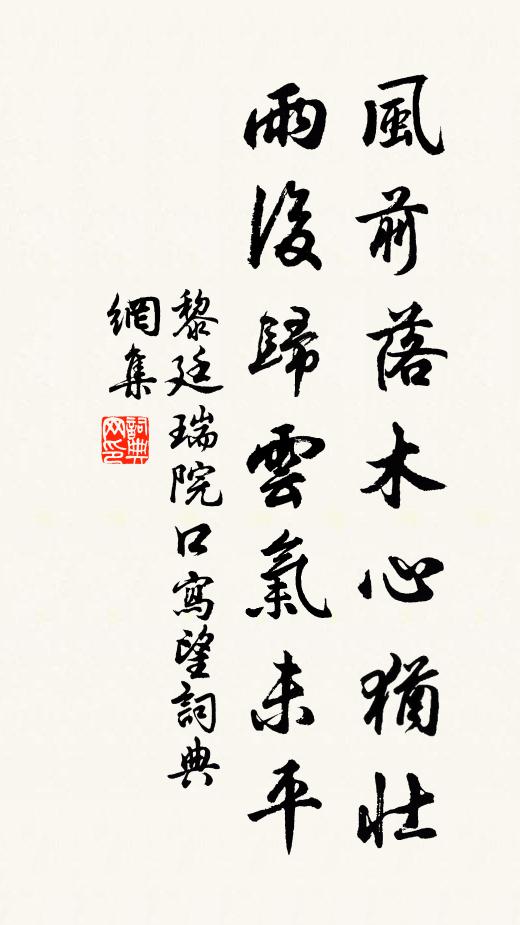 風前落木心猶壯
雨後歸雲氣未平
黎廷瑞院口寫望詞典
網集
詞典
网印